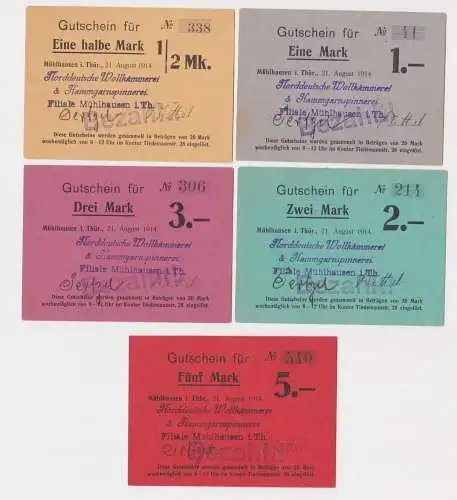 Gutschein für № 338
Eine halbe Mark 1/2 Mk.
Mühlhausen i. Thür., 21. August 1914.
Norddeutsche Wollkämmerei
& Kammgarnspinnerei
Filiale Mühlhausen i. Th.
Bezahlt!
Diese Gutscheine werden gesammelt in Beträgen von 20 Mark
wochentäglich von 9 - 12 Uhr im Kontor Tiedemannstr. 28 eingelöst.
Gutschein für № 41
Eine Mark 1.—
Mühlhausen i. Thür., 21. August 1914.
Norddeutsche Wollkämmerei
& Kammgarnspinnerei
Filiale Mühlhausen i. Th.
Bezahlt!
Diese Gutscheine werden gesammelt in Beträgen von 20 Mark
wochentäglich von 9 - 12 Uhr im Kontor Tiedemannstr. 28 eingelöst.
Gutschein für № 306
Drei Mark 3.—
Mühlhausen i. Thür., 21. August 1914.
Norddeutsche Wollkämmerei
& Kammgarnspinnerei
Filiale Mühlhausen i. Th.
Bezahlt!
Diese Gutscheine werden gesammelt in Beträgen von 20 Mark
wochentäglich von 9 - 12 Uhr im Kontor Tiedemannstr. 28 eingelöst.
Gutschein für № 214
Zwei Mark 2.—
Mühlhausen i. Thür., 21. August 1914.
Norddeutsche Wollkämmerei
& Kammgarnspinnerei
Filiale Mühlhausen i. Th.
Bezahlt!
Diese Gutscheine werden gesammelt in Beträgen von 20 Mark
wochentäglich von 9 - 12 Uhr im Kontor Tiedemannstr. 28 eingelöst.
Gutschein für №
Fünf Mark 5.—
Mühlhausen i. Thür., 21. August 1914.
Norddeutsche Wollkämmerei
& Kammgarnspinnerei
Filiale Mühlhausen i. Th.
Bezahlt!
Diese Gutscheine werden gesammelt in Beträgen von 20 Mark
wochentäglich von 9 - 12 Uhr im Kontor Tiedemannstr. 28 eingelöst.